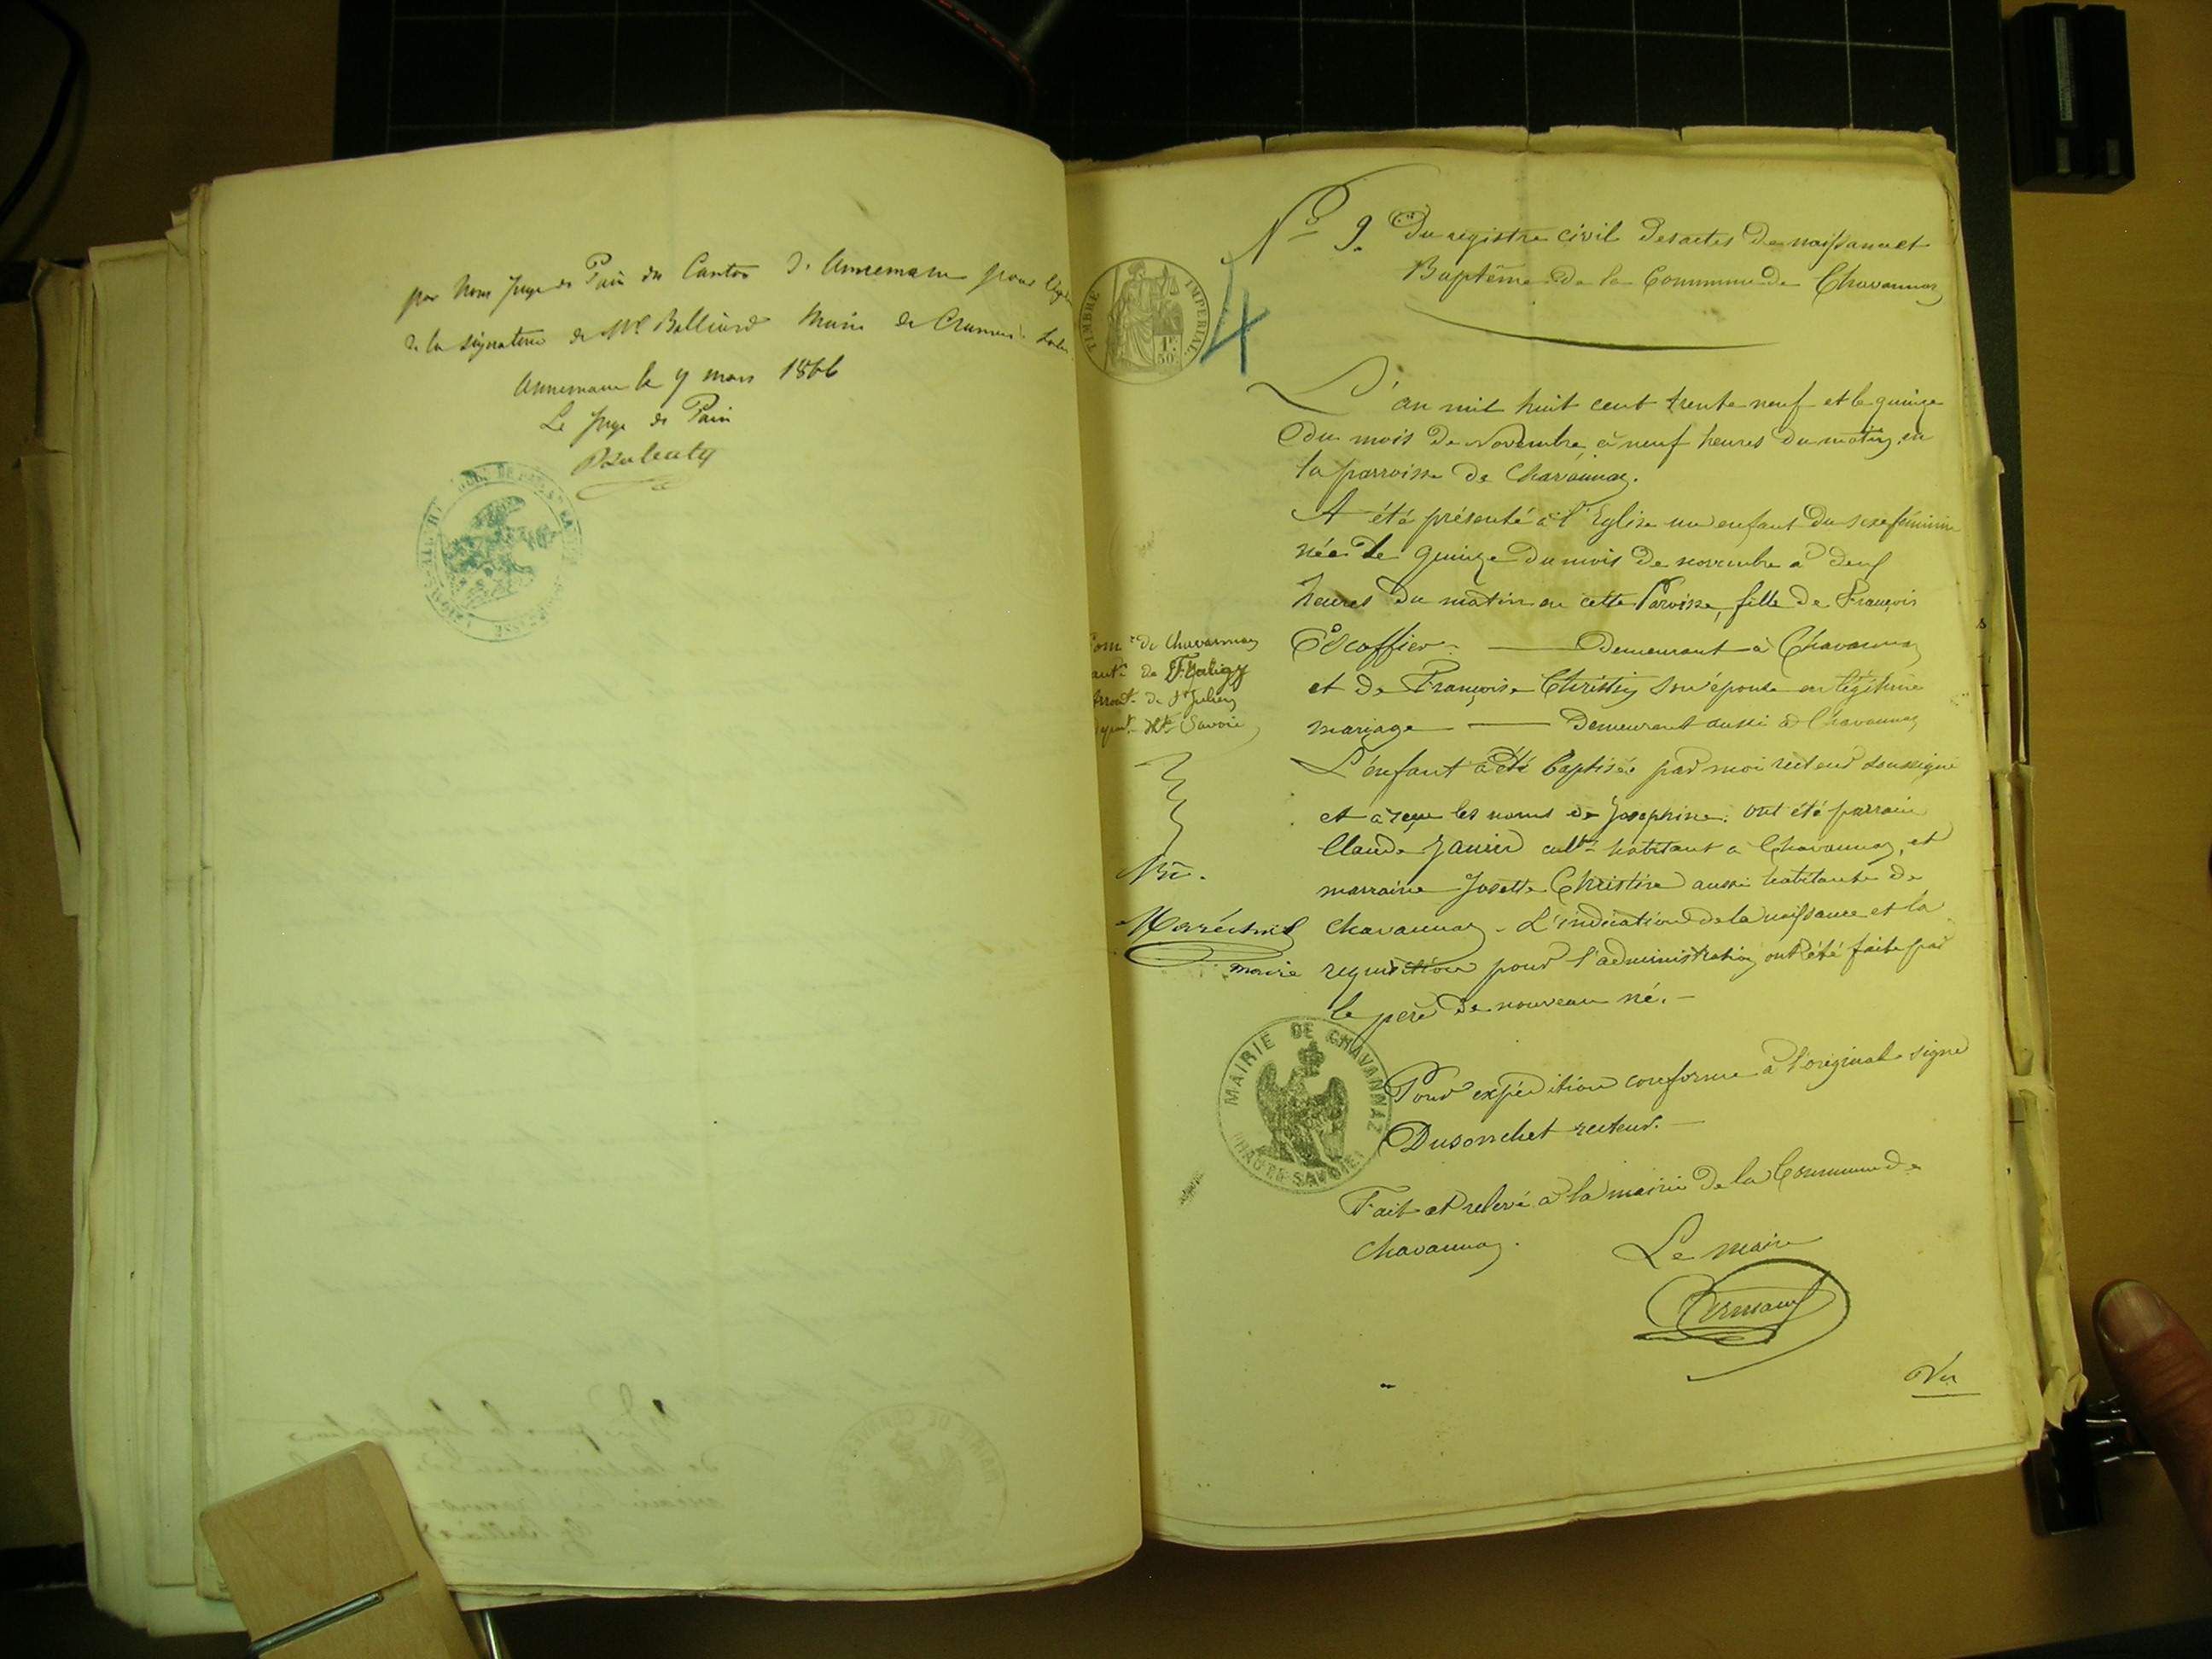 par Nous Juge de Paix du Canton d'Annemasse pour
de la signature de Mr Balliard Maire de
Annemasse le 9 mars 1866
Le Juge de Paix
No 9. Du registre civil des actes de naissance et
Baptême de la Commune de Chavannaz
TIMBRE IMPERIAL
1F.
50
4
L'an mil huit cent trente neuf et le quinze
du mois de Novembre à neuf heures du matin, en
la parroisse de Chavannaz.
A été présenté à l'Eglise un enfant du sexe féminin
née le quinze du mois de novembre à deux
heures du matin en cette Paroisse, fille de François
Escoffier — Demeurant à Chavannaz
et de Françoise Christin son épouse en légitime
mariage — Demeurant aussi à Chavannaz
L'enfant a été baptisée par moi recteur soussigné
et a reçu les noms de Josephine. ont été parrain
Claude Janin cultr habitant a Chavannaz, et
marraine Josette Christin aussi habitante de
Chavannaz. L'indication de la naissance et la
requisition pour l'administration ont été faite par
le père de nouveau né. —
de Chavannaz
de
de St Julien
Hte Savoie
maire
MAIRIE DE CHAVANNAZ
HAUTE-SAVOIE
Pour expédition conforme à l'original signé
Dusonchet recteur. —
Fait et relevé à la mairie de la Commune de
Chavannaz.
Le maire
Vu